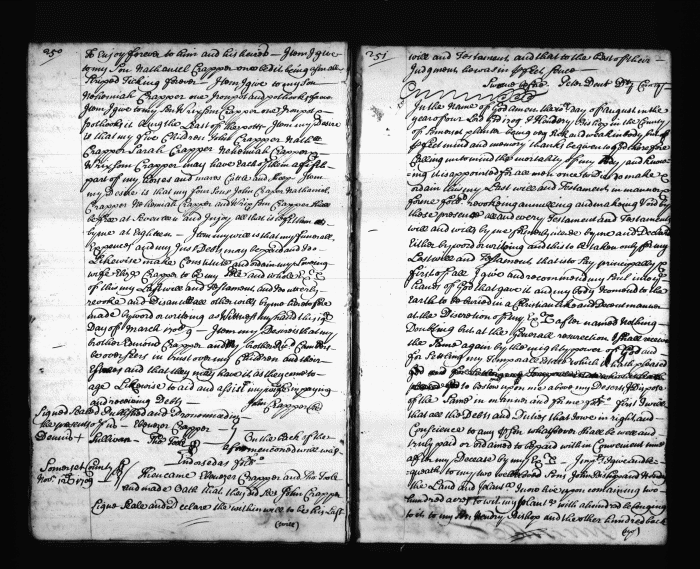 250
To Enjoy forever to him and his heirs — Item I give
to my Son Nathaniel Crapper one bed it being a small
Striped Ticking — Item I give to my Son
Nehemiah Crapper one Iron pot and pothooks
Item I give unto my Son Wrixsom Crapper one Iron pot &
pothooks it being the Least of the potts Item my desire
is that my five Children John Crapper Nath:ll
Crapper Sarah Crapper Nehemiah Crapper
Wrixsom Crapper may have Each of them a fifth
part of my horses and mares Cattle and Sheep Item
my Desire is that my four Sons John Crapper Nathaniel
Crapper Nehemiah Crapper and Wrixsom Crapper shall
be free at Seventeen and Injoy all that is
byme at Eighteen — Item my will is that my funerall
Expences and my Just Debts may be paid and I do
Likewise make Constitute and ordain my Loveing
wife Crapper to be my and whole Ex:x
of this my Last will and Testament and utterly
revoke and Disanull all other wills byme heretofore
made by word or writing as witness my hand this
Day of March 1709 — Item my Desire is that my
brother Edmond Crapper and my brother
be overseers in trust over my Children and their
Estates and that they may have it as they come to
age Likewise to aid and assist my wife in paying
and receiveing Debts — John Crapper
Signed Sealed Published and
the presents of us — Ebenezer Crapper —
Dennis + Sullivan — Tho: Poole
On the back of the
aforementioned will was
Endorsed as foll:
Somerset County
Nov: 1709
Then came Ebenezer Crapper and Tho: Poole
and made Oath that they did See John Crapper
Signe Seale and declare the within will to be his Last
(will)
251
will and Testament and that to the best of their
Judgment he was in perfect Sence —
Sworne before Peter Dent County
In the Name of God amen the Day of August in the
year of our Lord 1709 I Henry Bishop in the County
of Somerset planter being very sick and weak in body but of
perfect mind and memory thanks be given to God therefore
Calling unto mind the mortality of my Body and knowing
that it is appointed for all men once to Die do make &
ordain this my Last will and Testament in manner &
forme foll: revokeing annulling and making Void by
these presents all and every Testament and Testaments
will and wills byme heretofore made and Declared
Either by word or writing and this to be taken only for my
Last will and Testament that is to Say principally &
first of all I give and recommend my Soul into the
hands of God that gave it and my body I commend to the
earth to be buried in a Christian like and Decent manner
at the Discretion of my Ex:rs after named nothing
Doubting but at the generall resurrection I shall receive
the Same again by the mighty power of God and
for Setling my temporall Estate which it hath pleased
God
to bestow upon me above my Deserts I Dispose
of the Same in manner and forme foll: first I will
that all the Debts and Duties that I owe in right and
Conscience to any person whatsoever shall be well and
truly paid or ordained to be paid within Convenient time
after my Decease by my Ex:rs Imp:s I give and be
queath to my two well beloved Sons John Bishop and Henry
the Land and plant: I now live upon containing two
hundred acres to wit my plant: with a hundred belonging
to it to my Son Henry Bishop and the other hundred back